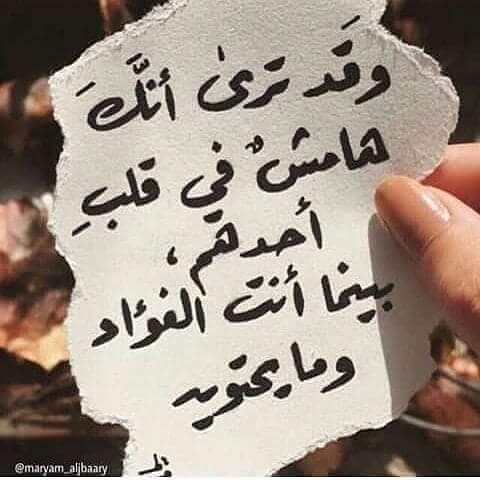 وَقَد ترىٰ أنَّكَ
هامشٌ في قلبِ
أحدهم،
بينما أنت الفؤاد
وما يحتويه
@maryam_aljbaary